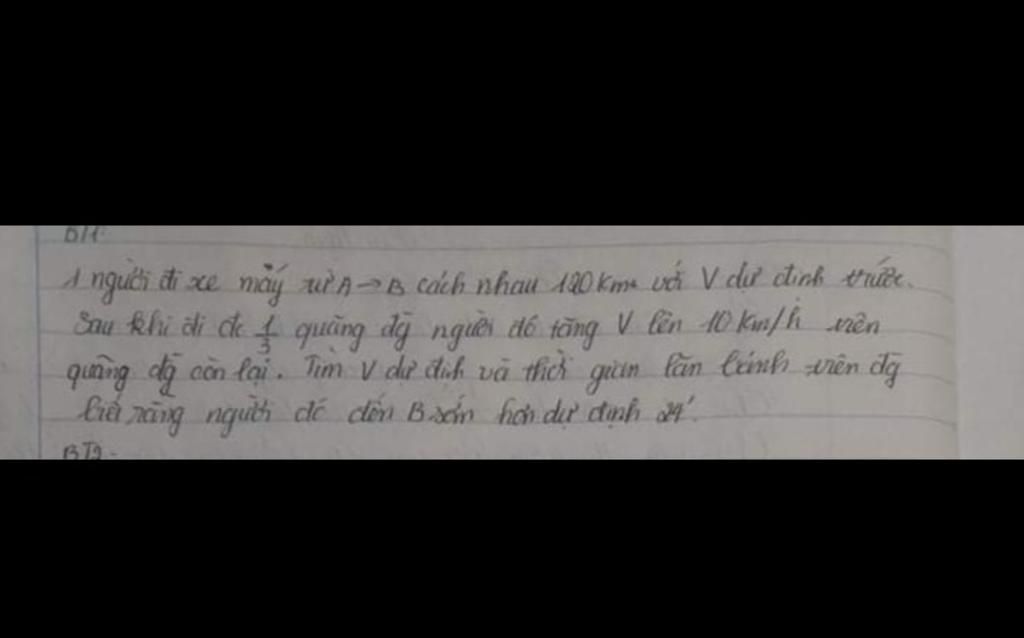 BT1:
1 người đi xe máy từ A → B cách nhau 120 Km với V dự định trước.
Sau khi đi đc 1/3 quãng đg người đó tăng V lên 10 Km/h trên
quãng đg còn lại. Tìm V dự định và thời gian lăn bánh trên đg
biết rằng người đó đến B sớm hơn dự định 24'.
BT2: